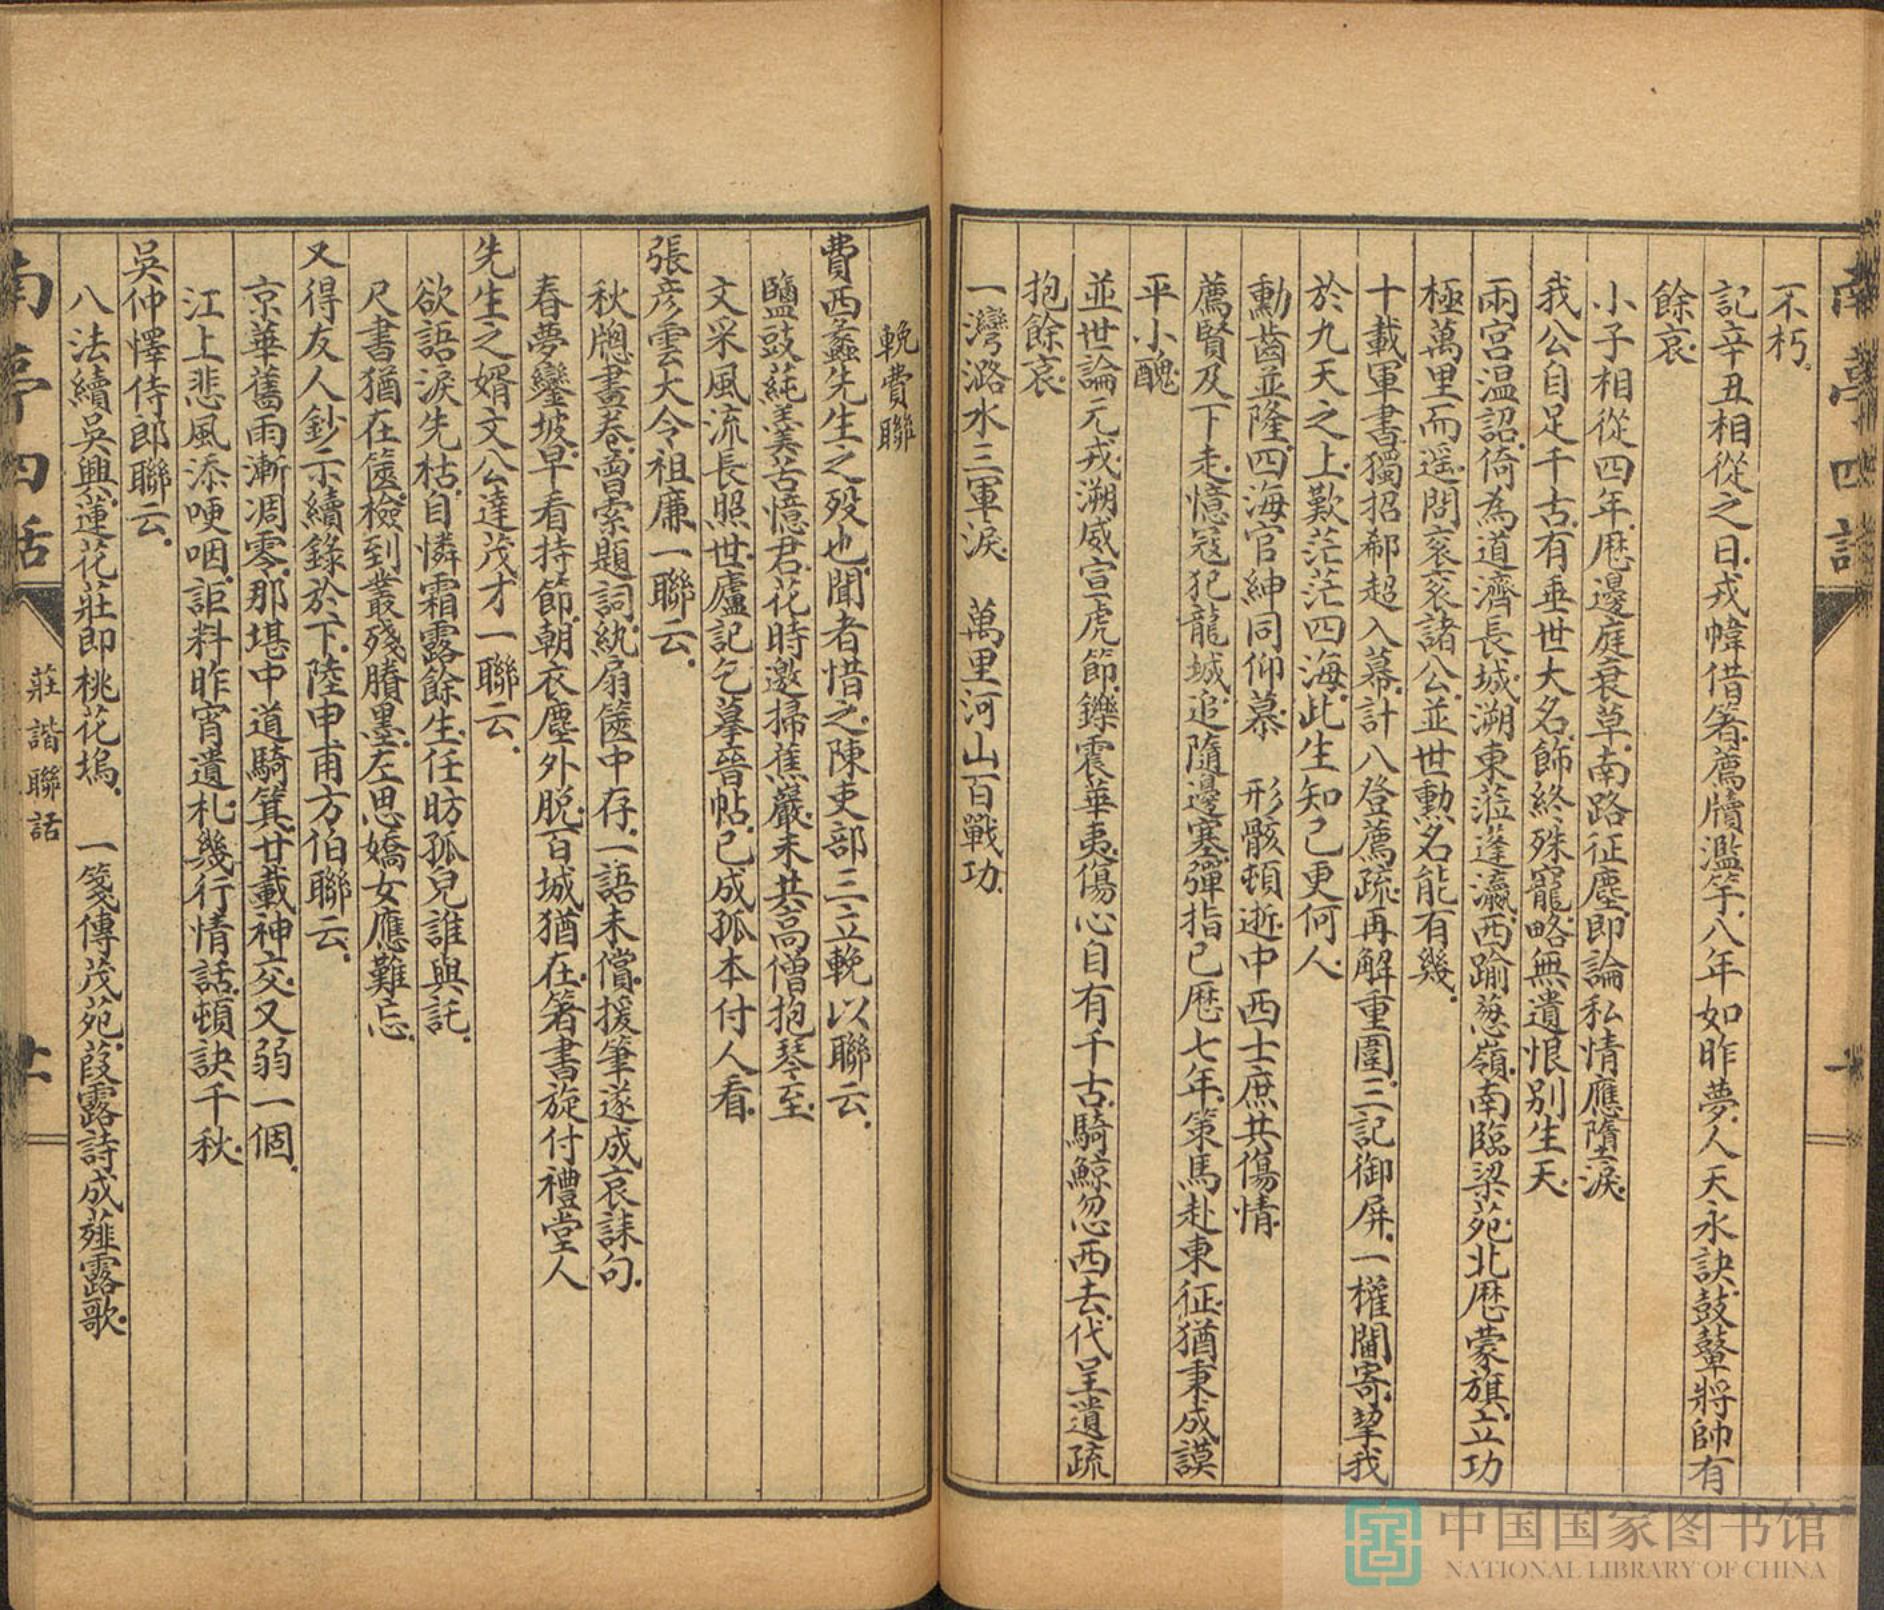 南亭四話
不朽.
記辛丑相從之日.戎幃借箸.薦牘濫竽.八年如昨夢.人天永訣.鼓鼙將帥有
餘哀.
小子相從四年.歷邊庭衰草.南路征塵.即論私情應墮淚.
我公自足千古.有垂世大名.飾終殊寵.略無遺恨別生天.
兩宮温詔.倚為道濟長城.溯東蒞蓬瀛.西踰葱嶺.南臨梁苑.北歷蒙旗.立功
極萬里而遥.問衮衮諸公.並世勲名能有幾.
十載軍書.獨招郗超入幕.計八登薦疏.再解重圍.三記御屏.一權閫寄.挈我
於九天之上.歎茫茫四海.此生知己更何人.
勳齒並隆.四海官紳同仰慕　形骸頓逝.中西士庶共傷情.
薦賢及下走.憶寇犯龍城.追隨邊塞.彈指已歷七年.策馬赴東征.猶秉成謨
平小醜.
並世論元戎.溯威宣虎節.鑠震華夷.傷心自有千古.騎鯨忽西去.代呈遺疏
抱餘哀.
一灣潞水三軍淚.　萬里河山百戰功.
輓費聯
費西蠡先生之歿也.聞者惜之.陳吏部三立輓以聯云.
鹽豉蒓羹苦憶君.花時邀掃蕉巖.未共高僧抱琴至.
文采風流長照世.廬記乞摹晉帖.已成孤本付人看.
張彥雲大令祖廉一聯云.
秋牕畫卷.曾索題詞.紈扇篋中存.一語未償.援筆遂成哀誄句.
春夢鑾坡.早看持節.朝衣塵外脱.百城猶在.箸書旋付禮堂人
先生之婿文公達茂才一聯云.
欲語淚先枯.自憐霜露餘生.任昉孤兒誰與託.
尺書猶在篋.檢到叢殘賸墨.左思嬌女應難忘.
又得友人鈔示續錄於下.陸申甫方伯聯云.
京華舊雨漸凋零.那堪中道騎箕.廿載神交.又弱一個.
江上悲風添哽咽.詎料昨宵遺札.幾行情話.頓訣千秋.
吳仲懌侍郎聯云.
八法續吳興.蓮花莊即桃花塢.　一箋傳茂苑.葭露詩成薤露歌.
南亭四話
莊諧聯話